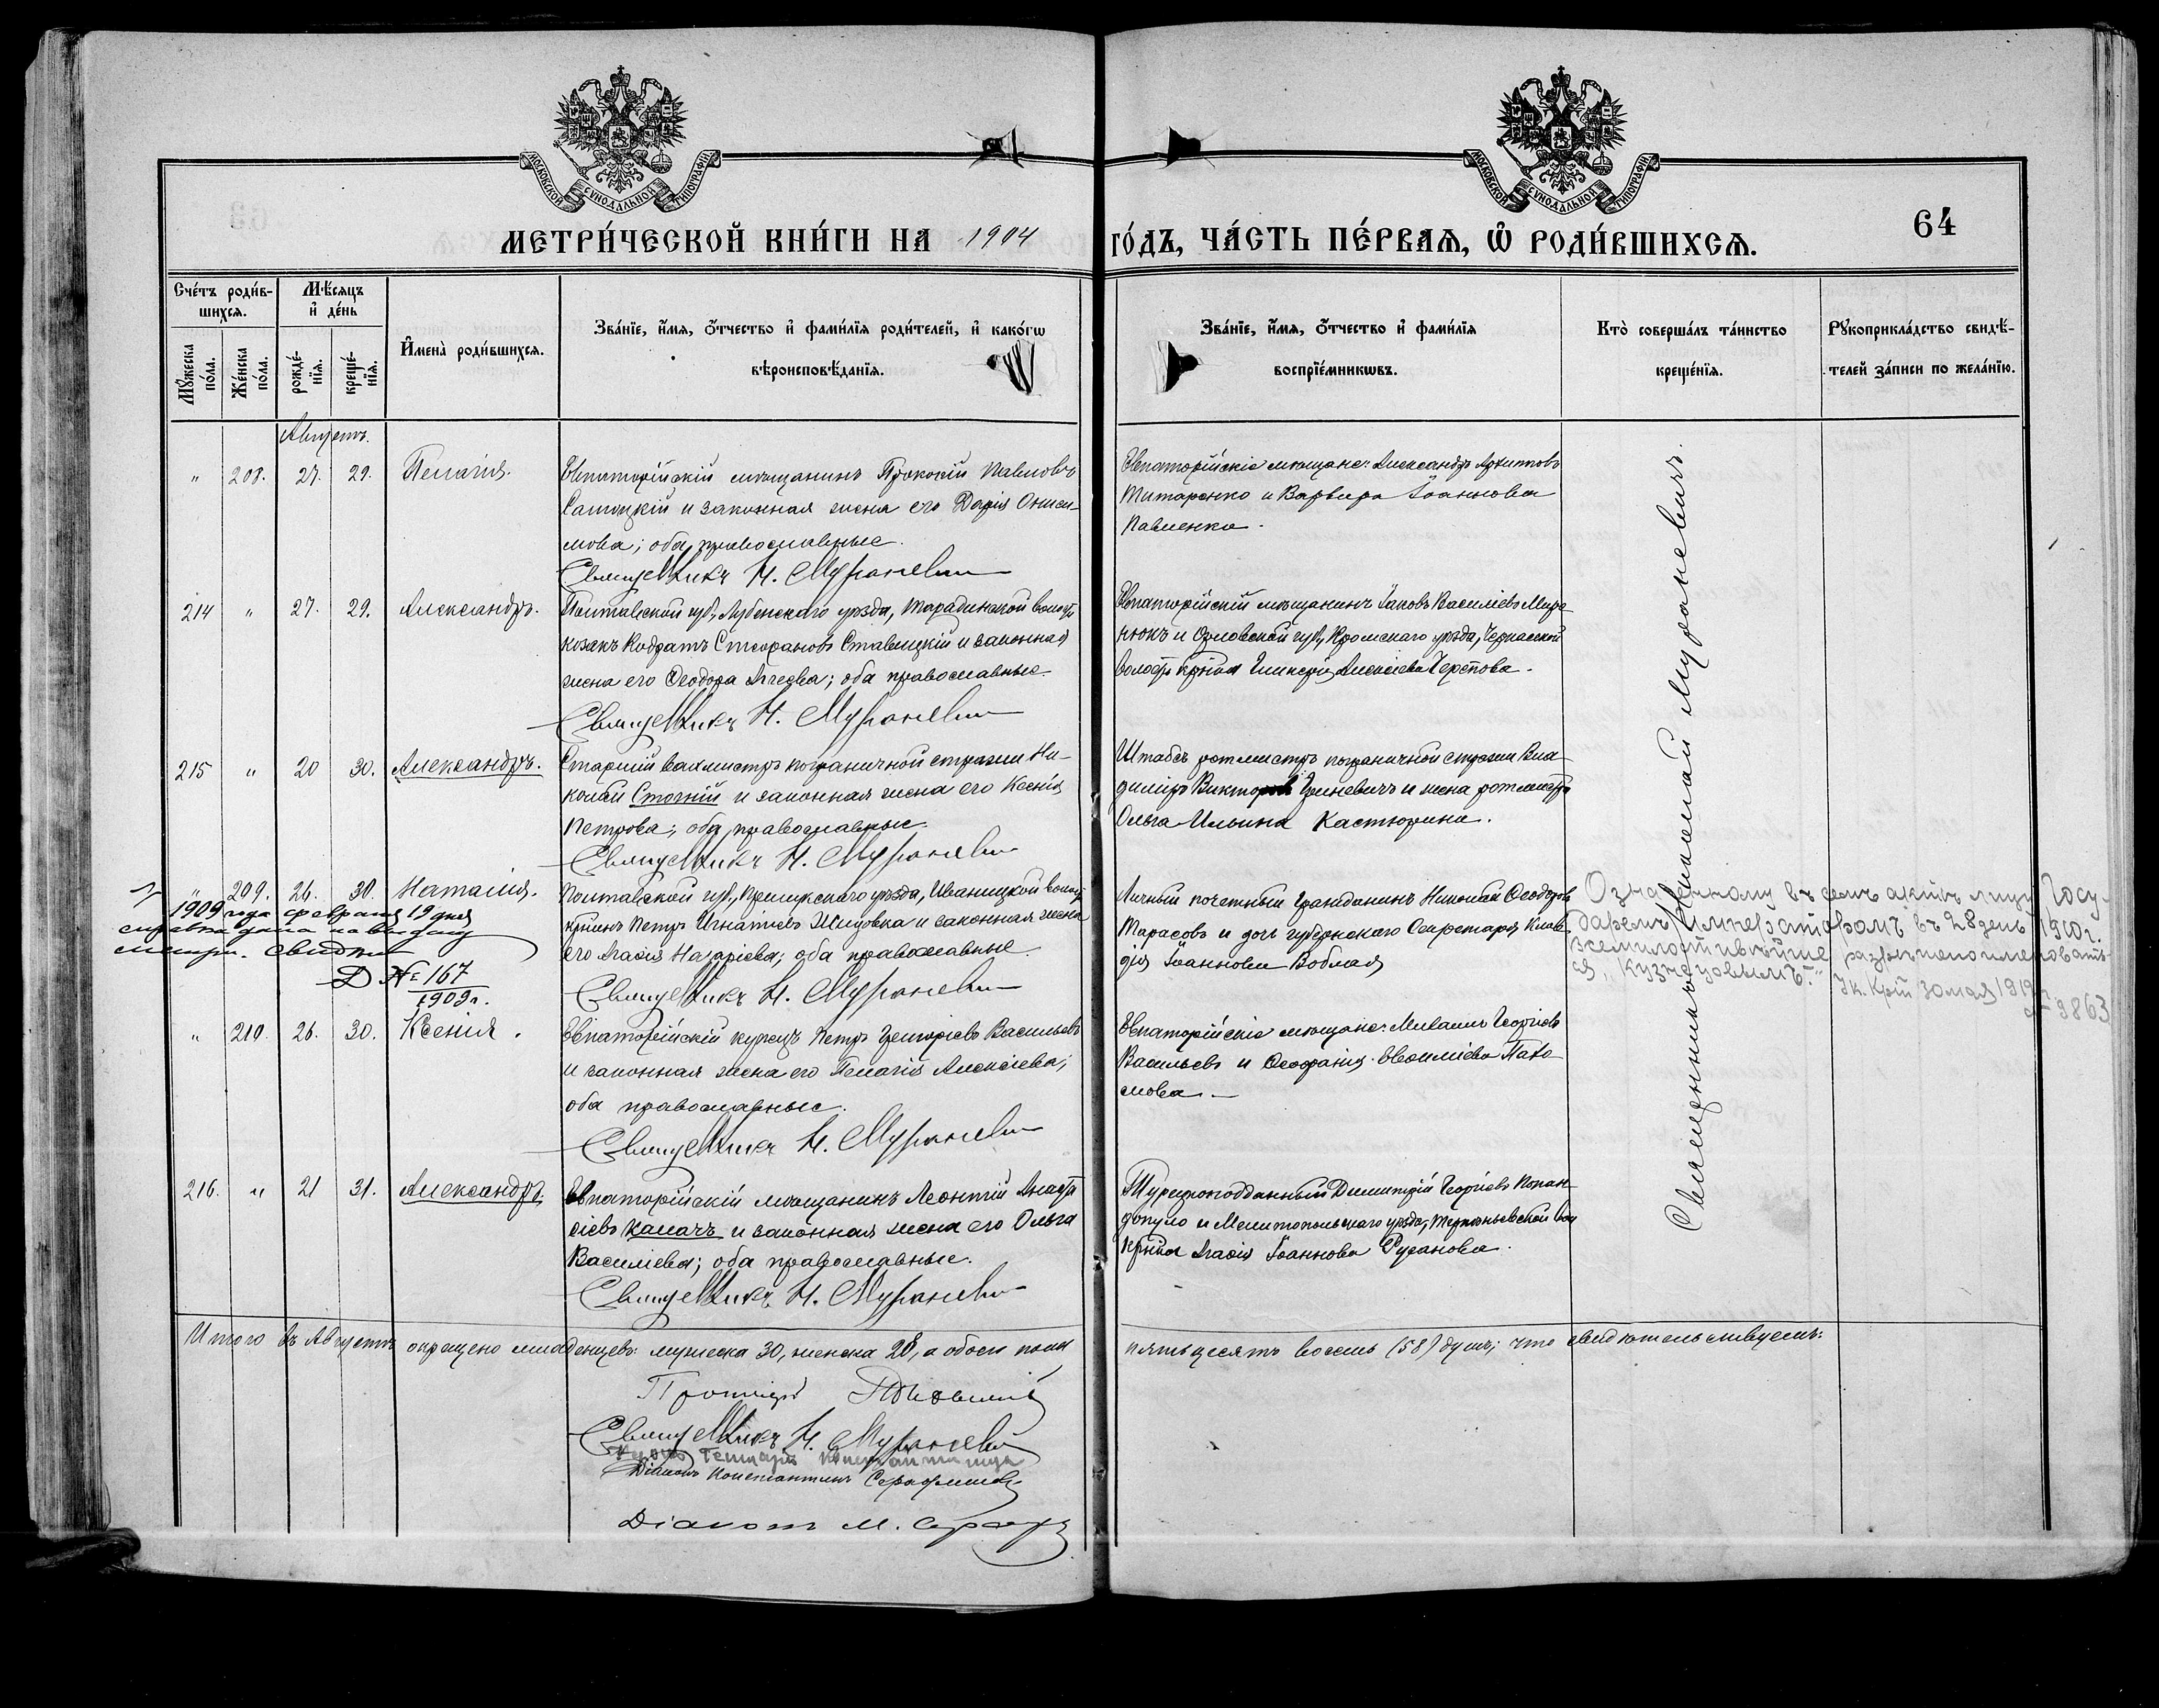 МОСКОВСКОЙ СѴНОДАЛЬНОЙ ТИПОГРАФІИ
МОСКОВСКОЙ СѴНОДАЛЬНОЙ ТИПОГРАФІИ
МЕТРИ́ЧЕСКОЙ КНИ́ГИ НА 1904 ГО́ДЪ, ЧА́СТЬ ПЕ́РВАѦ, Ѡ҆ РОДИ́ВШИХСѦ.
64
Счéтъ роди́в-
шихсѧ.
Мѹ́жеска по́ла.
Же́нска по́ла.
Мѣ́сѧцъ
и҆ де́нь
рожде́-
нїѧ.
креще́-
нїѧ.
И҆мена̀ роди́вшихсѧ.
Зва́нїе, и҆́мѧ, ѻ҆́тчество и҆ фами́лїѧ роди́телей, и҆ како́гѡ
вѣроисповѣ́данїѧ.
Зва́нїе, и҆́мѧ, ѻ҆́тчество и҆ фами́лїѧ
воспрїе́мникѡвъ.
Кто̀ соверша́лъ та́инство
креще́нїѧ.
Рѹкоприкла́дство свидѣ́-
телей за́писи по жела́нїю.
Августъ.
" 208. 27. 29. Пелагія.
Евпаторійскій мѣщанинъ Прокопій Павловъ
и законная жена его ДаріяОниси-
мова; оба православные.
Священникъ Н. Мураневич
Евпаторійскіе мѣщане: Александръ Архиповъ
Титаренко и Варвара Іоаннова
Павленко.
214 " 27. 29. Александръ.
Полтавской губ., Лубенскаго уѣзда, Тарадинской волости
козакъ Кодратъ Стефановъ Ставицкій и законная
жена его Ѳеодора; оба православные.
Священникъ Н. Мураневич
Евпаторійскій мѣщанинъ Іаковъ Василіевъ Миро-
нюкъ и Орловской губ., Кромскаго уѣзда,
волости Алексіева
215 " 20 30. Александръ.
Старшій вахмистръ пограничной стражи Ни-
колай Стогній и законная жена его Ксенія
Петрова; оба православные.
Священникъ Н. Мураневич
Штабсъ ротмистръ пограничной стражи Вла-
диміръ Викторовъ Гриневичъ и жена ротмистра
Ольга Ильина Костюрина.
" 209. 26. 30. Наталія.
Полтавской губ., Прилукскаго уѣзда, Иваницкой волости
кр-нинъ Петръ Игнатіевъ и законная жена
его Агафія Назаріева; оба православные.
Священникъ Н. Мураневич
Личный почетный гражданинъ Николай Ѳеодоровъ
Тарасовъ и дочь губернскаго Секретаря Клав-
дія Іоаннова Воблая
1909 года февраля 19 дня
справка дана на выдачу
метр. свидет.
№ 167
1909 г.
Означенному въ семъ актѣ лицу Госу-
даремъ Императоромъ въ 28 день 1910 г.
Всемилостивѣйше разрѣшено именовать-
ся „Кузнецовымъ".
9863
" 210. 26. 30. Ксенія.
Евпаторійскій купецъ Петръ Григоріевъ Васильевъ
и законная жена его Пелагія Алексіева;
оба православные.
Священникъ Н. Мураневич
Евпаторійскіе мѣщане: Михаилъ Георгіевъ
Васильевъ и Ѳеофанія Евѳиміева Пахо-
мова.
216. " 21 31. Александръ.
Евпаторійскій мѣщанинъ Леонтій Анаста-
сіевъ Калачъ и законная жена его Ольга
Василіева; оба православные.
Священникъ Н. Мураневич
Турецкоподданный Димитрій Георгіевъ Попан-
допуло и Мелитопольскаго уѣзда,
Агафія Іоаннова Русанова.
Священникъ Николай Мураневичъ.
Итого въ Августѣ окрещено младенцевъ: мужеска 30, женска 28, а обоего пола пятьдесятъ восемь (58) душъ; что свидѣтельствуемъ:
Протоіерей
Священникъ Н. Мураневич
Діаконъ Константинъ Серафимовъ
Діаконъ М.